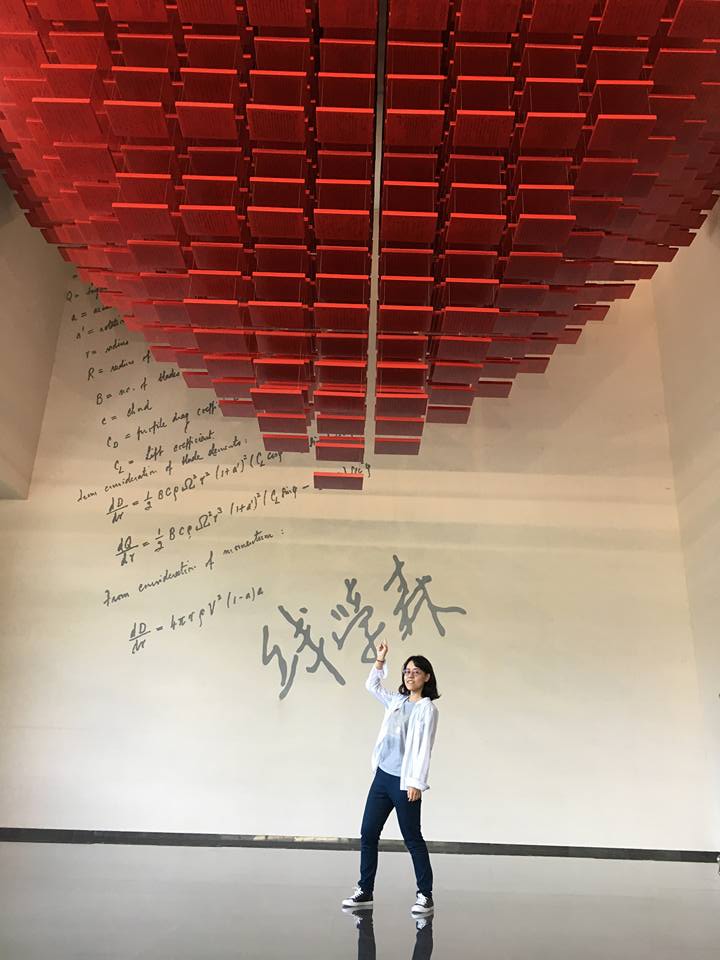 Q =
a =
a' =
r = radius
R = radius of
B = no. of blades
c = chord
C_D = profile drag coeff
C_L = Lift coefficient.
From consideration of blade elements:
dD/dr = ½ B c ρ Ω² r² (1+a')² (C_L cosφ
dQ/dr = ½ B c ρ Ω² r³ (1+a')² (C_L sinφ −
From consideration of momentum:
dD/dr = 4πrρV² (1−a)a
钱学森